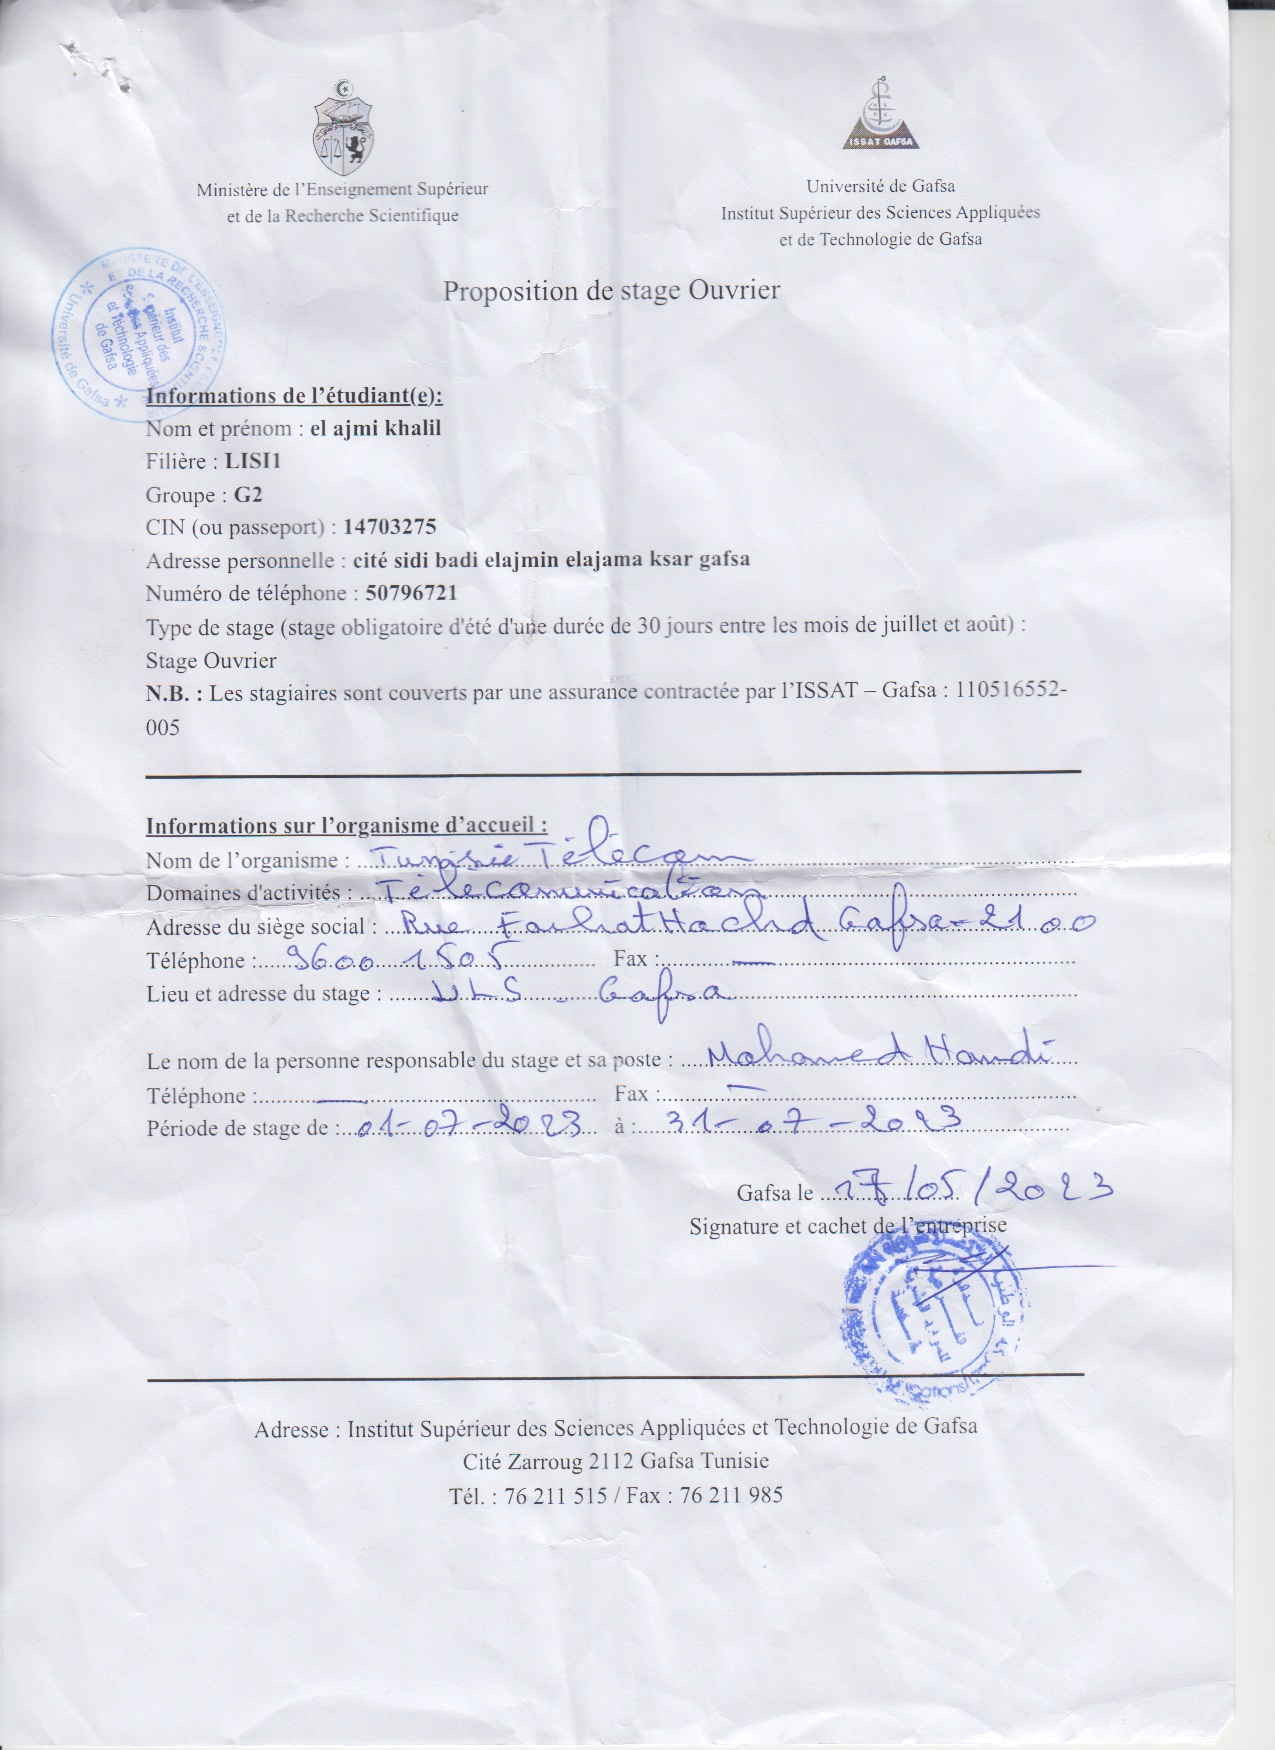 Ministère de l'Enseignement Supérieur
et de la Recherche Scientifique
ISSAT GAFSA
Université de Gafsa
Institut Supérieur des Sciences Appliquées
et de Technologie de Gafsa
Proposition de stage Ouvrier
Université de Gafsa
Institut
et Technologie
de Gafsa
Informations de l'étudiant(e):
Nom et prénom : el ajmi khalil
Filière : LISI1
Groupe : G2
CIN (ou passeport) : 14703275
Adresse personnelle : cité sidi badi elajmin elajama ksar gafsa
Numéro de téléphone : 50796721
Type de stage (stage obligatoire d'été d'une durée de 30 jours entre les mois de juillet et août) :
Stage Ouvrier
N.B. : Les stagiaires sont couverts par une assurance contractée par l'ISSAT – Gafsa : 110516552-
005
Informations sur l'organisme d'accueil :
Nom de l'organisme : Tunisie Télécom
Domaines d'activités : Télécomunication
Adresse du siège social : Rue Farhat Hached Gafsa - 2100
Téléphone : 9600 1505 Fax : —
Lieu et adresse du stage : ULS Gafsa
Le nom de la personne responsable du stage et sa poste : Mohamed Hamdi
Téléphone : — Fax : —
Période de stage de : 01-07-2023 à : 31-07-2023
Gafsa le 17/05/2023
Signature et cachet de l'entreprise
Adresse : Institut Supérieur des Sciences Appliquées et Technologie de Gafsa
Cité Zarroug 2112 Gafsa Tunisie
Tél. : 76 211 515 / Fax : 76 211 985